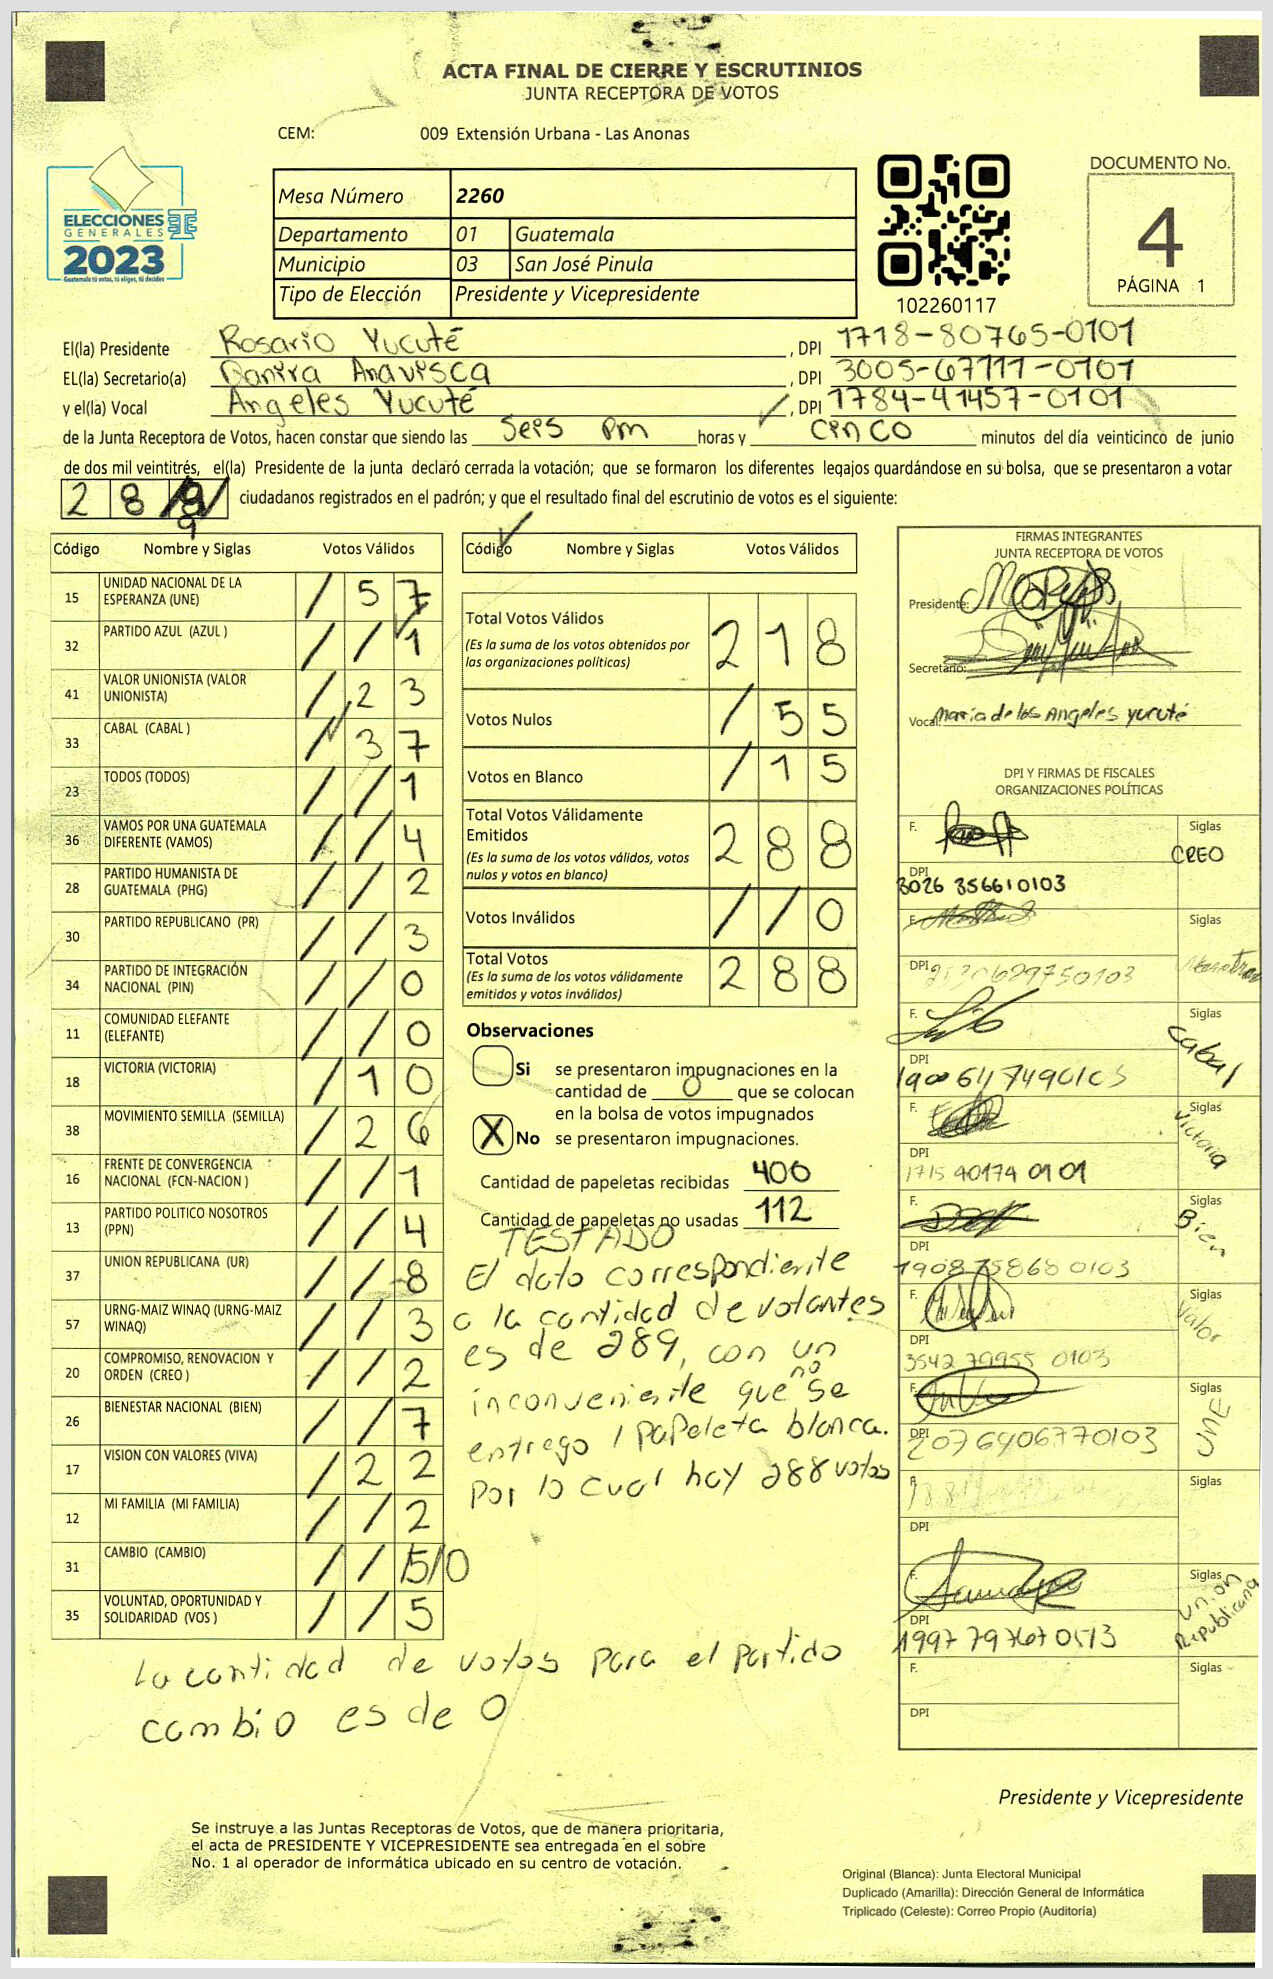 ACTA FINAL DE CIERRE Y ESCRUTINIOS
JUNTA RECEPTORA DE VOTOS
CEM: 009 Extensión Urbana - Las Anonas
ELECCIONES
GENERALES
2023
Guatemala tú votas, tú eliges, tú decides
TSE
Mesa Número 2260
Departamento 01 Guatemala
Municipio 03 San José Pinula
Tipo de Elección Presidente y Vicepresidente
102260117
DOCUMENTO No.
4
PÁGINA 1
El(la) Presidente Rosario Yucuté , DPI 1718-80765-0101
EL(la) Secretario(a) , DPI 3005-67111-0101
y el(la) Vocal Angeles Yucuté , DPI 1784-41457-0101
de la Junta Receptora de Votos, hacen constar que siendo las Seis pm horas y cinco minutos del día veinticinco de junio
de dos mil veintitrés, el(la) Presidente de la junta declaró cerrada la votación; que se formaron los diferentes legajos guardándose en su bolsa, que se presentaron a votar
2 8 9 ciudadanos registrados en el padrón; y que el resultado final del escrutinio de votos es el siguiente:
Código Nombre y Siglas Votos Válidos
15 UNIDAD NACIONAL DE LA ESPERANZA (UNE) / 5 7
32 PARTIDO AZUL (AZUL ) / / 1
41 VALOR UNIONISTA (VALOR UNIONISTA) / 2 3
33 CABAL (CABAL ) / 3 7
23 TODOS (TODOS) / / 1
36 VAMOS POR UNA GUATEMALA DIFERENTE (VAMOS) / / 4
28 PARTIDO HUMANISTA DE GUATEMALA (PHG) / / 2
30 PARTIDO REPUBLICANO (PR) / / 3
34 PARTIDO DE INTEGRACIÓN NACIONAL (PIN) / / 0
11 COMUNIDAD ELEFANTE (ELEFANTE) / / 0
18 VICTORIA (VICTORIA) / 1 0
38 MOVIMIENTO SEMILLA (SEMILLA) / 2 6
16 FRENTE DE CONVERGENCIA NACIONAL (FCN-NACION ) / / 1
13 PARTIDO POLITICO NOSOTROS (PPN) / / 4
37 UNION REPUBLICANA (UR) / / 8
57 URNG-MAIZ WINAQ (URNG-MAIZ WINAQ) / / 3
20 COMPROMISO, RENOVACION Y ORDEN (CREO ) / / 2
26 BIENESTAR NACIONAL (BIEN) / / 7
17 VISION CON VALORES (VIVA) / 2 2
12 MI FAMILIA (MI FAMILIA) / / 2
31 CAMBIO (CAMBIO) / / 5/0
35 VOLUNTAD, OPORTUNIDAD Y SOLIDARIDAD (VOS ) / / 5
La cantidad de votos para el partido
cambio es de 0
Código Nombre y Siglas Votos Válidos
Total Votos Válidos 2 1 8
(Es la suma de los votos obtenidos por
las organizaciones políticas)
Votos Nulos / 5 5
Votos en Blanco / 1 5
Total Votos Válidamente
Emitidos 2 8 8
(Es la suma de los votos válidos, votos
nulos y votos en blanco)
Votos Inválidos / / 0
Total Votos 2 8 8
(Es la suma de los votos válidamente
emitidos y votos inválidos)
Observaciones
Si se presentaron impugnaciones en la
cantidad de 0 que se colocan
en la bolsa de votos impugnados
X No se presentaron impugnaciones.
Cantidad de papeletas recibidas 400
Cantidad de papeletas no usadas 112
TESTADO
El dato correspondiente
a la cantidad de votantes
es de 289, con un
inconveniente que no se
entrego 1 papeleta blanca.
Por lo cual hay 288 votos
FIRMAS INTEGRANTES
JUNTA RECEPTORA DE VOTOS
Presidente:
Secretario:
Vocal: Maria de los Angeles yucuté
DPI Y FIRMAS DE FISCALES
ORGANIZACIONES POLÍTICAS
F. Siglas CREO
DPI 3026 356610103
F. Siglas
DPI
F. Siglas Cabal
DPI
F. Siglas Victoria
DPI 1715 40174 0101
F. Siglas Bien
DPI
F. Siglas Valor
DPI 3542 79955 0103
F. Siglas UNE
DPI 2076 906770103
F. Siglas
DPI
F. Siglas Union Republicana
DPI
F. Siglas
DPI
Presidente y Vicepresidente
Se instruye a las Juntas Receptoras de Votos, que de manera prioritaria,
el acta de PRESIDENTE Y VICEPRESIDENTE sea entregada en el sobre
No. 1 al operador de informática ubicado en su centro de votación.
Original (Blanca): Junta Electoral Municipal
Duplicado (Amarilla): Dirección General de Informática
Triplicado (Celeste): Correo Propio (Auditoría)